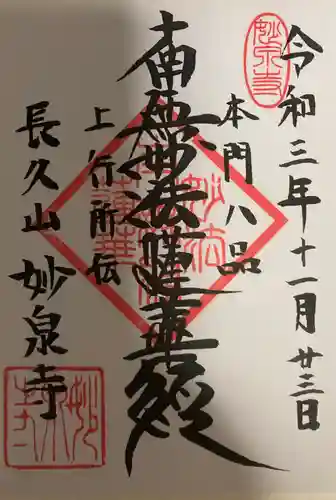 令和三年十一月廿三日
本門八品
南無妙法蓮華経
上行所伝
長久山 妙泉寺
妙法
蓮華
妙泉寺